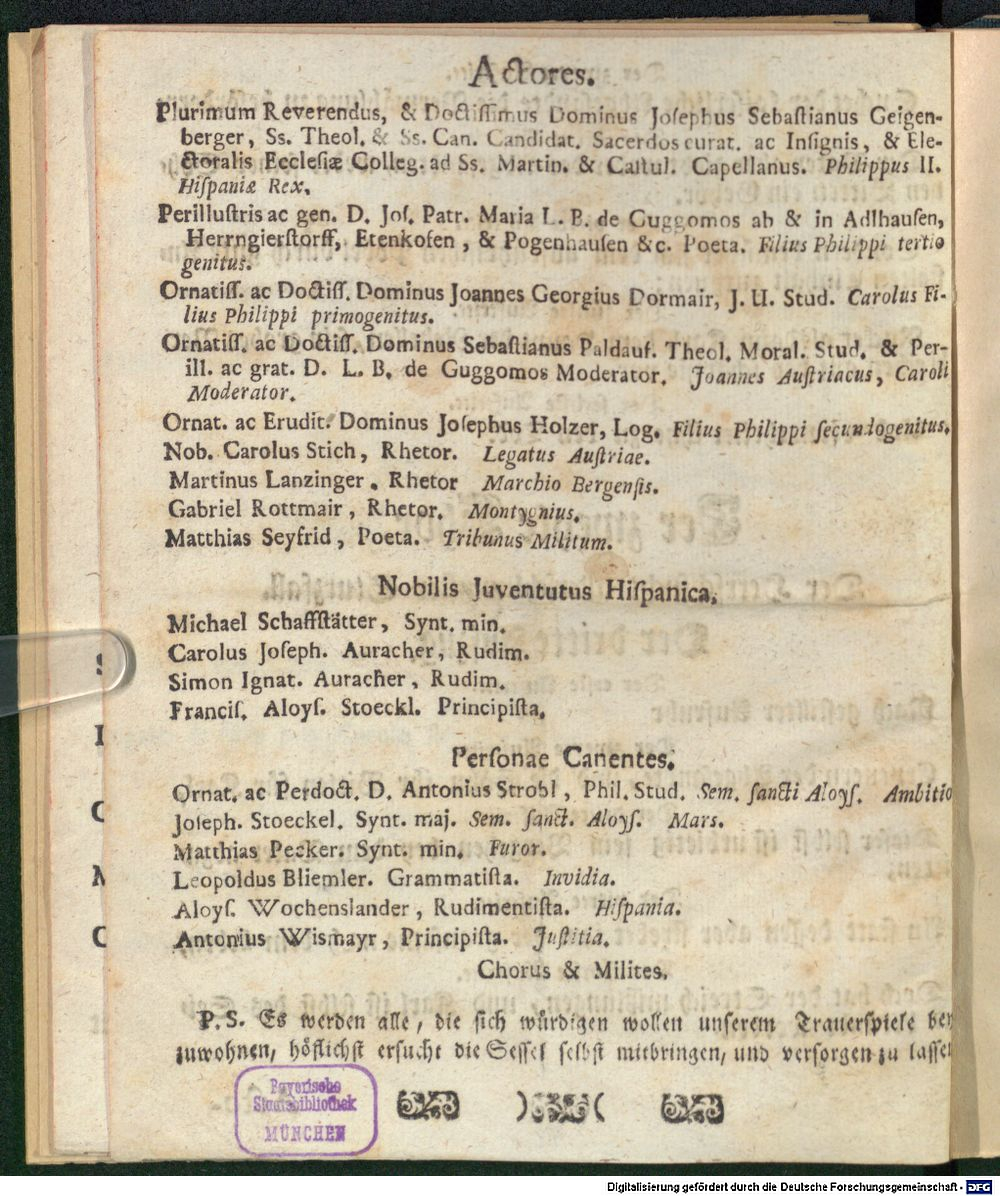 Actores.
Plurimum Reverendus, & Doctiſſimus Dominus Joſephus Sebaſtianus Geigen-
berger, Ss. Theol. & Ss. Can. Candidat. Sacerdos curat. ac Inſignis, & Ele-
ctoralis Eccleſiæ Colleg. ad Ss. Martin. & Caſtul. Capellanus. Philippus II.
Hiſpaniæ Rex.
Perilluſtris ac gen. D. Joſ. Patr. Maria L. B. de Guggomos ab & in Adlhauſen,
Herrngierſtorff, Etenkofen, & Pogenhauſen &c. Poeta. Filius Philippi tertio
genitus.
Ornatiſſ. ac Doctiſſ. Dominus Joannes Georgius Dormair, J. U. Stud. Carolus Fi-
lius Philippi primogenitus.
Ornatiſſ. ac Doctiſſ. Dominus Sebaſtianus Paldauf. Theol. Moral. Stud. & Per-
ill. ac grat. D. L. B. de Guggomos Moderator. Joannes Auſtriacus, Caroli
Moderator.
Ornat. ac Erudit. Dominus Joſephus Holzer, Log. Filius Philippi ſecundogenitus.
Nob. Carolus Stich, Rhetor. Legatus Auſtriae.
Martinus Lanzinger. Rhetor Marchio Bergenſis.
Gabriel Rottmair, Rhetor. Montygnius.
Matthias Seyfrid, Poeta. Tribunus Militum.
Nobilis Juventutus Hiſpanica.
Michael Schaffſtätter, Synt. min.
Carolus Joſeph. Auracher, Rudim.
Simon Ignat. Auracher, Rudim.
Franciſ. Aloyſ. Stoeckl. Principiſta.
Perſonae Canentes.
Ornat. ac Perdoct. D. Antonius Strobl, Phil. Stud. Sem. ſancti Aloyſ. Ambitio
Joſeph. Stoeckel. Synt. maj. Sem. ſanct. Aloyſ. Mars.
Matthias Pecker. Synt. min. Furor.
Leopoldus Bliemler. Grammatiſta. Invidia.
Aloyſ. Wochenslander, Rudimentiſta. Hiſpania.
Antonius Wismayr, Principiſta. Juſtitia.
Chorus & Milites.
P. S. Es werden alle, die sich würdigen wollen unserem Trauerspiele bey
zuwohnen, höflichst ersucht die Sessel selbst mitbringen, und versorgen zu lassen
Bayerische
Staatsbibliothek
MÜNCHEN
Digitalisierung gefördert durch die Deutsche Forschungsgemeinschaft - DFG